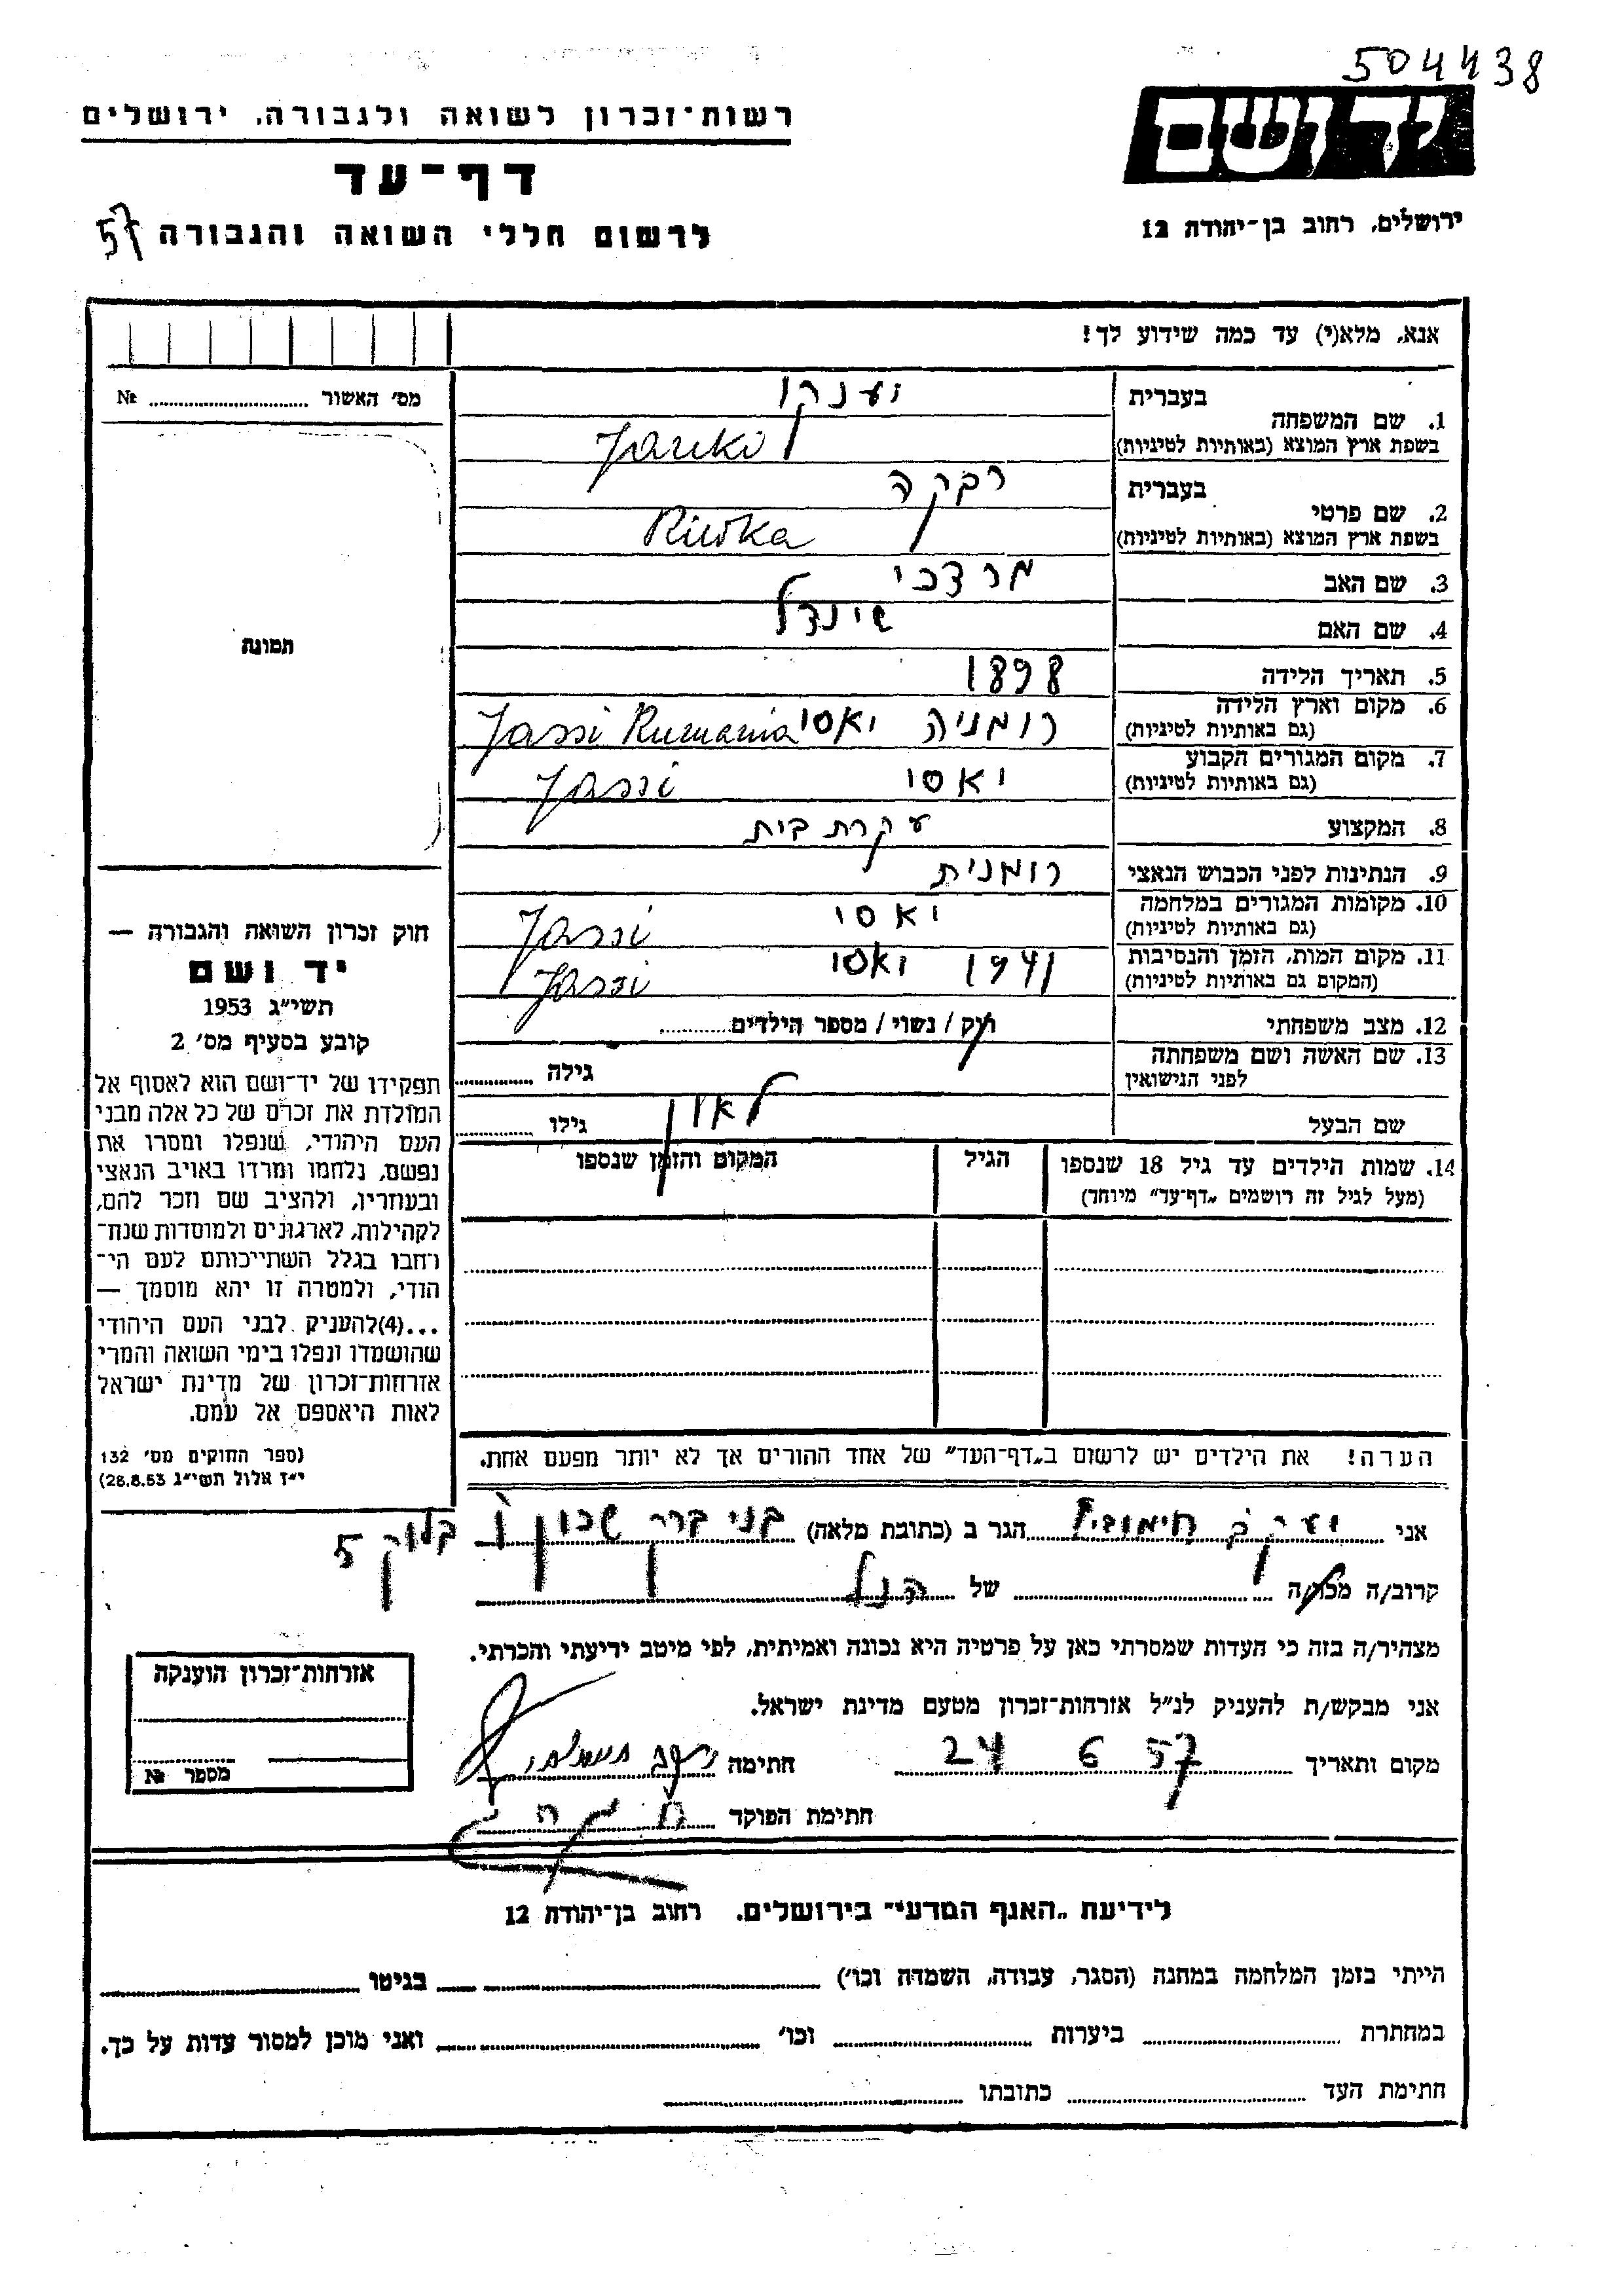 504438
יד ושם
ירושלים, רחוב בן־יהודה 12
רשות־זכרון לשואה ולגבורה, ירושלים
דף־עד
לרשום חללי השואה והגבורה 57
אנא, מלא(י) עד כמה שידוע לך!
מס' האשור № 
תמונה
1. שם המשפחה
בעברית יענקו
בשפת ארץ המוצא (באותיות לטיניות) Janko
2. שם פרטי
בעברית רבקה
בשפת ארץ המוצא (באותיות לטיניות) Riwka
3. שם האב מרדכי
4. שם האם שינדל
5. תאריך הלידה 1898
6. מקום וארץ הלידה רומניה יאסי Jassi Rumania
(גם באותיות לטיניות)
7. מקום המגורים הקבוע יאסי Jassi
(גם באותיות לטיניות)
8. המקצוע עקרת בית
9. הנתינות לפני הכבוש הנאצי רומנית
10. מקומות המגורים במלחמה יאסי Jassi
(גם באותיות לטיניות)
11. מקום המות, הזמן והנסיבות 1941 יאסי Jassi
(המקום גם באותיות לטיניות)
12. מצב משפחתי רוק / נשוי / מספר הילדים
13. שם האשה ושם משפחתה גילה
לפני הנישואין
שם הבעל לאון גילו
14. שמות הילדים עד גיל 18 שנספו הגיל המקום והזמן שנספו
(מעל לגיל זה רושמים „דף־עד” מיוחד)
חוק זכרון השואה והגבורה —
יד ושם
תשי״ג 1953
קובע בסעיף מס' 2
תפקידו של יד־ושם הוא לאסוף אל
המולדת את זכרם של כל אלה מבני
העם היהודי, שנפלו ומסרו את
נפשם, נלחמו ומרדו באויב הנאצי
ובעוזריו, ולהציב שם וזכר להם,
לקהילות, לארגונים ולמוסדות שנח־
רחבו בגלל השתייכותם לעם הי־
הודי, ולמטרה זו יהא מוסמך —
...(4)להעניק לבני העם היהודי
שהושמדו ונפלו בימי השואה והמרי
אזרחות־זכרון של מדינת ישראל
לאות היאספם אל עמם.
(ספר החוקים מס' 132
י״ז אלול תשי״ג 28.8.53)
הערה! את הילדים יש לרשום ב„דף־העד” של אחד ההורים אך לא יותר מפעם אחת.
אני יעקב הגר ב (כתובת מלאה) בני ברק שכון ו בלוק 5
קרוב/ה מכר/ה של הנ״ל
מצהיר/ה בזה כי העדות שמסרתי כאן על פרטיה היא נכונה ואמיתית, לפי מיטב ידיעתי והכרתי.
אני מבקש/ת להעניק לנ״ל אזרחות־זכרון מטעם מדינת ישראל.
מקום ותאריך 24 6 57 חתימה
חתימת הפוקד
אזרחות־זכרון הוענקה
מספר №
לידיעת „האגף המדעי” בירושלים. רחוב בן־יהודה 12
הייתי בזמן המלחמה במחנה (הסגר, עבודה, השמדה וכו') בגיטו
במחתרת ביערות וכו' ואני מוכן למסור עדות על כך.
חתימת העד כתובתו